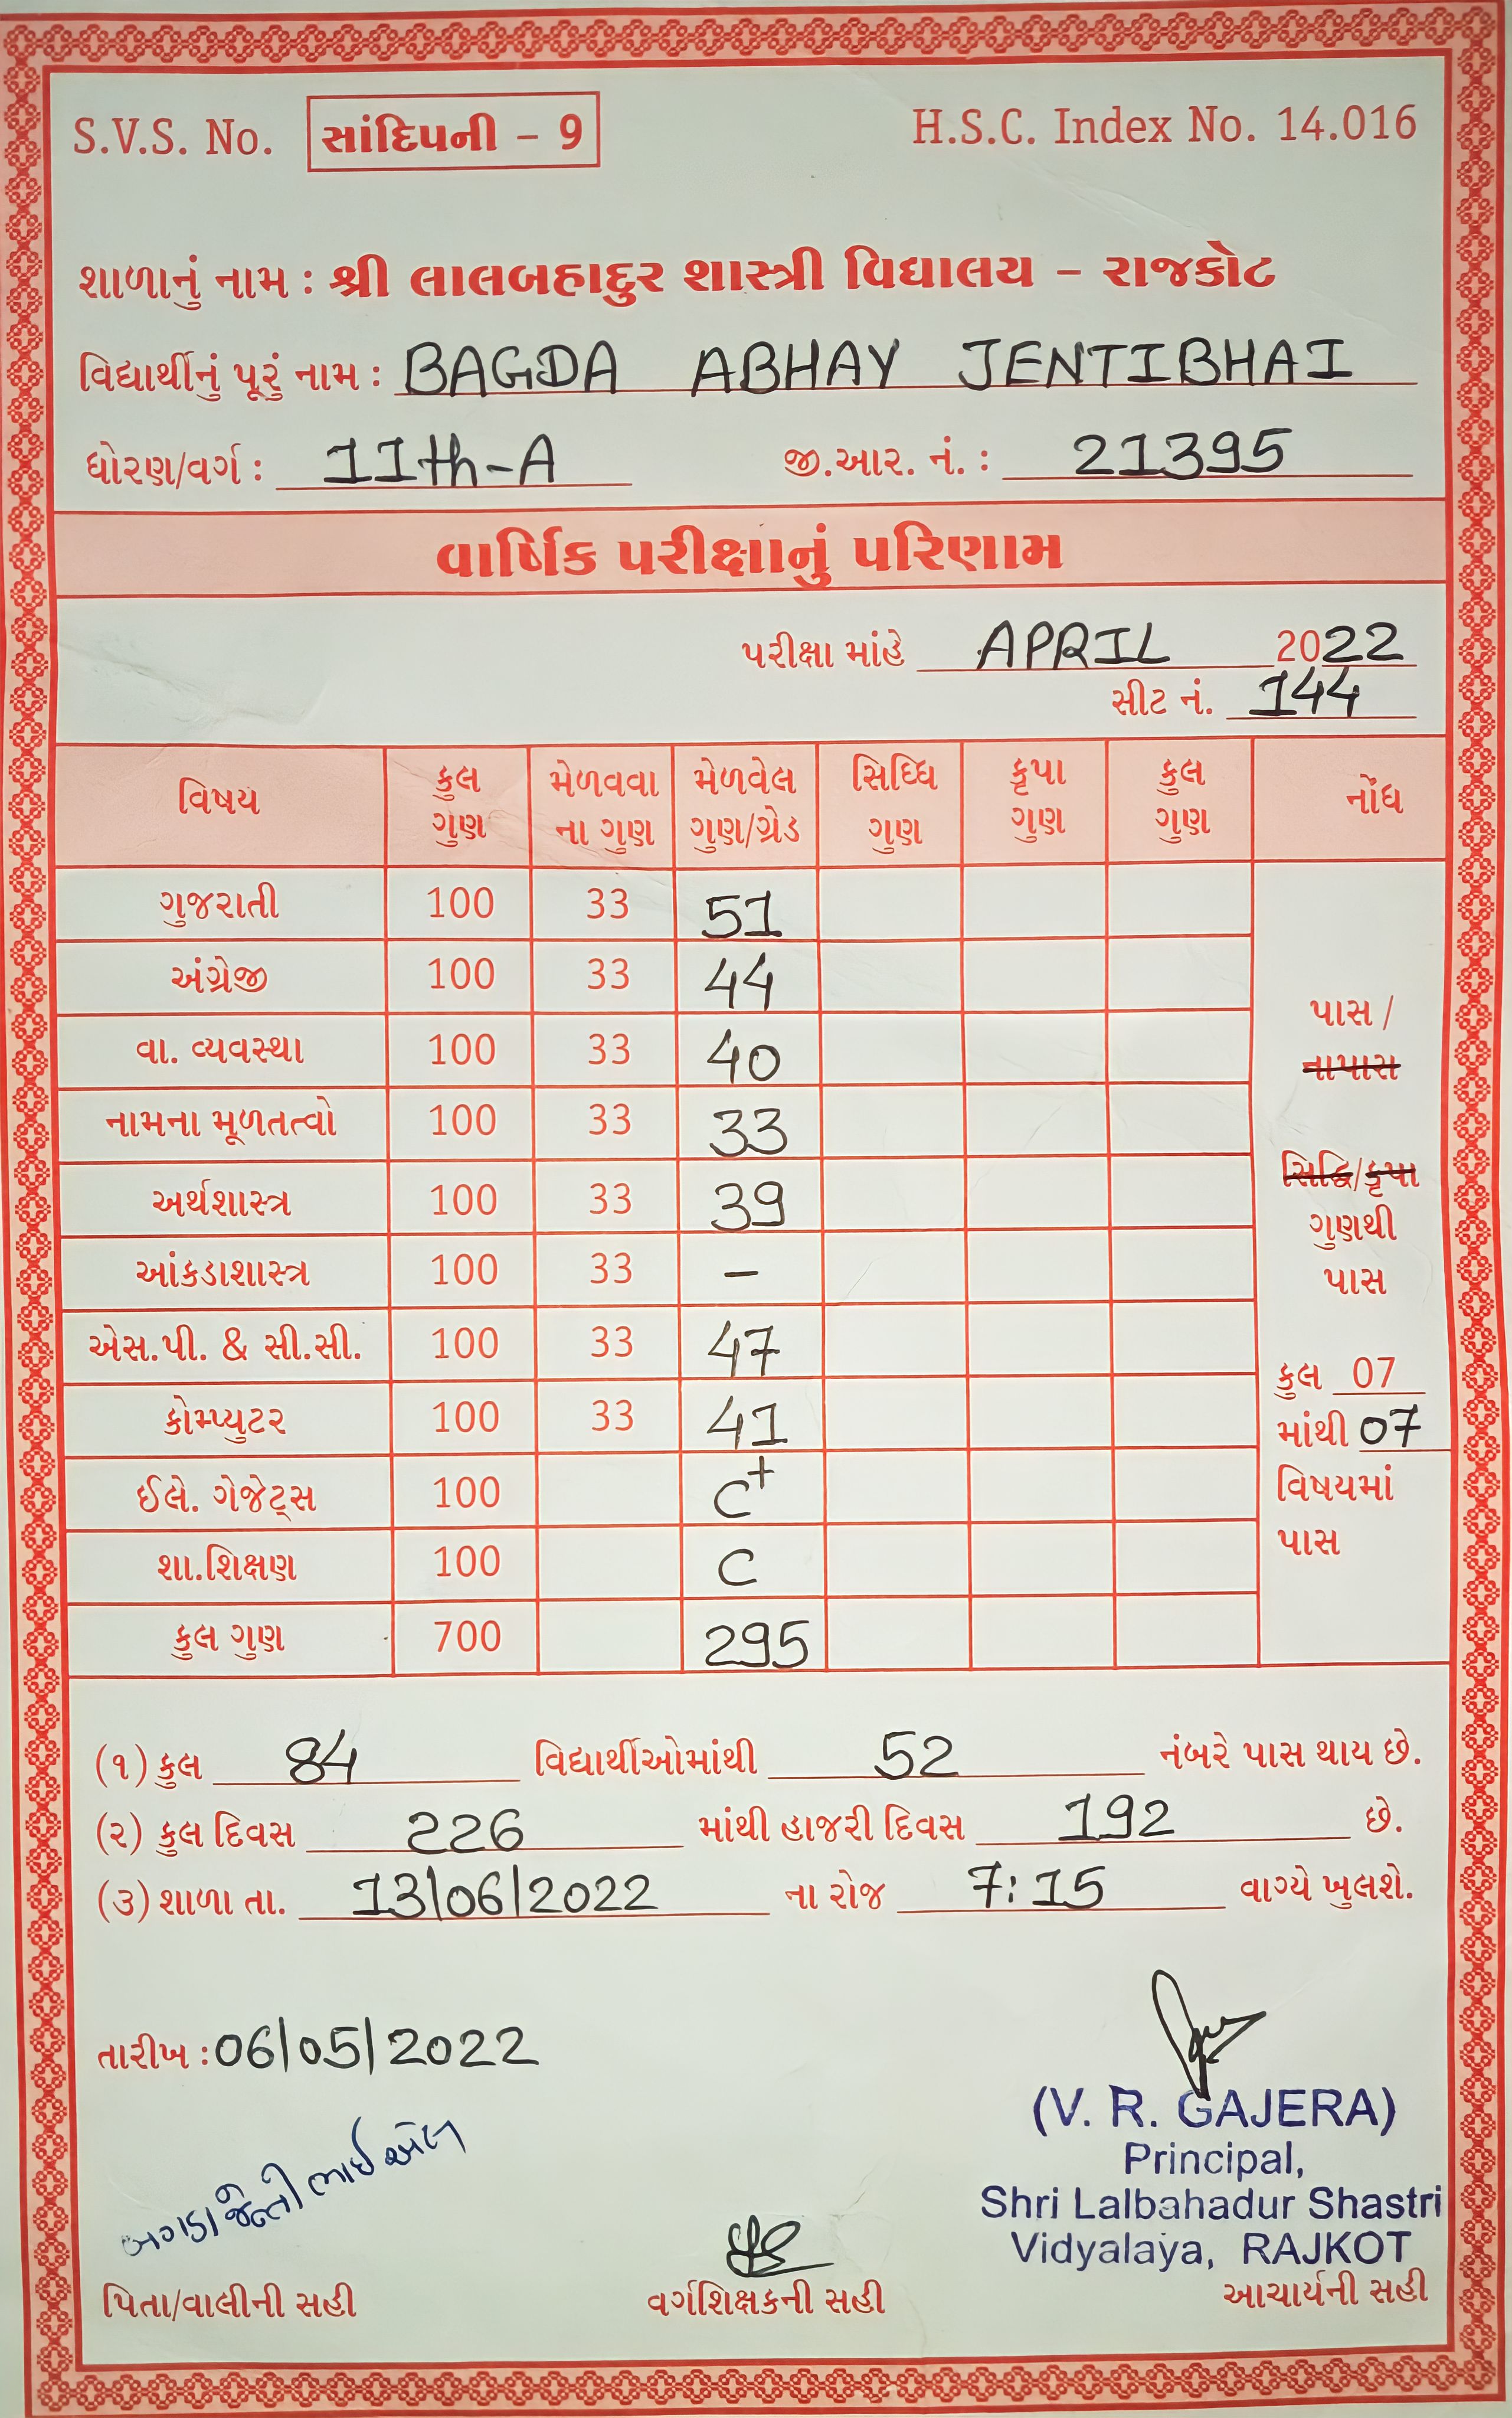 S.V.S. No. સાંદિપની – 9 H.S.C. Index No. 14.016
શાળાનું નામ : શ્રી લાલબહાદુર શાસ્ત્રી વિદ્યાલય – રાજકોટ
વિદ્યાર્થીનું પૂરું નામ : BAGDA ABHAY JENTIBHAI
ધોરણ/વર્ગ : 11th-A જી.આર. નં. : 21395
વાર્ષિક પરીક્ષાનું પરિણામ
પરીક્ષા માંહે APRIL 2022
સીટ નં. 144
વિષય કુલ ગુણ મેળવવા ના ગુણ મેળવેલ ગુણ/ગ્રેડ સિધ્ધિ ગુણ કૃપા ગુણ કુલ ગુણ નોંધ
ગુજરાતી 100 33 51
અંગ્રેજી 100 33 44
વા. વ્યવસ્થા 100 33 40
નામના મૂળતત્વો 100 33 33
અર્થશાસ્ત્ર 100 33 39
આંકડાશાસ્ત્ર 100 33 –
એસ.પી. & સી.સી. 100 33 47
કોમ્પ્યુટર 100 33 41
ઈલે. ગેજેટ્સ 100 C+
શા.શિક્ષણ 100 C
કુલ ગુણ 700 295
પાસ /
નાપાસ
સિદ્ધિ/કૃપા
ગુણથી
પાસ
કુલ 07
માંથી 07
વિષયમાં
પાસ
(૧) કુલ 84 વિદ્યાર્થીઓમાંથી 52 નંબરે પાસ થાય છે.
(૨) કુલ દિવસ 226 માંથી હાજરી દિવસ 192 છે.
(૩) શાળા તા. 13/06/2022 ના રોજ 7:15 વાગ્યે ખુલશે.
તારીખ : 06/05/2022
(V. R. GAJERA)
Principal,
Shri Lalbahadur Shastri
Vidyalaya, RAJKOT
બગડા જેન્તીભાઈ એલ
પિતા/વાલીની સહી વર્ગશિક્ષકની સહી આચાર્યની સહી